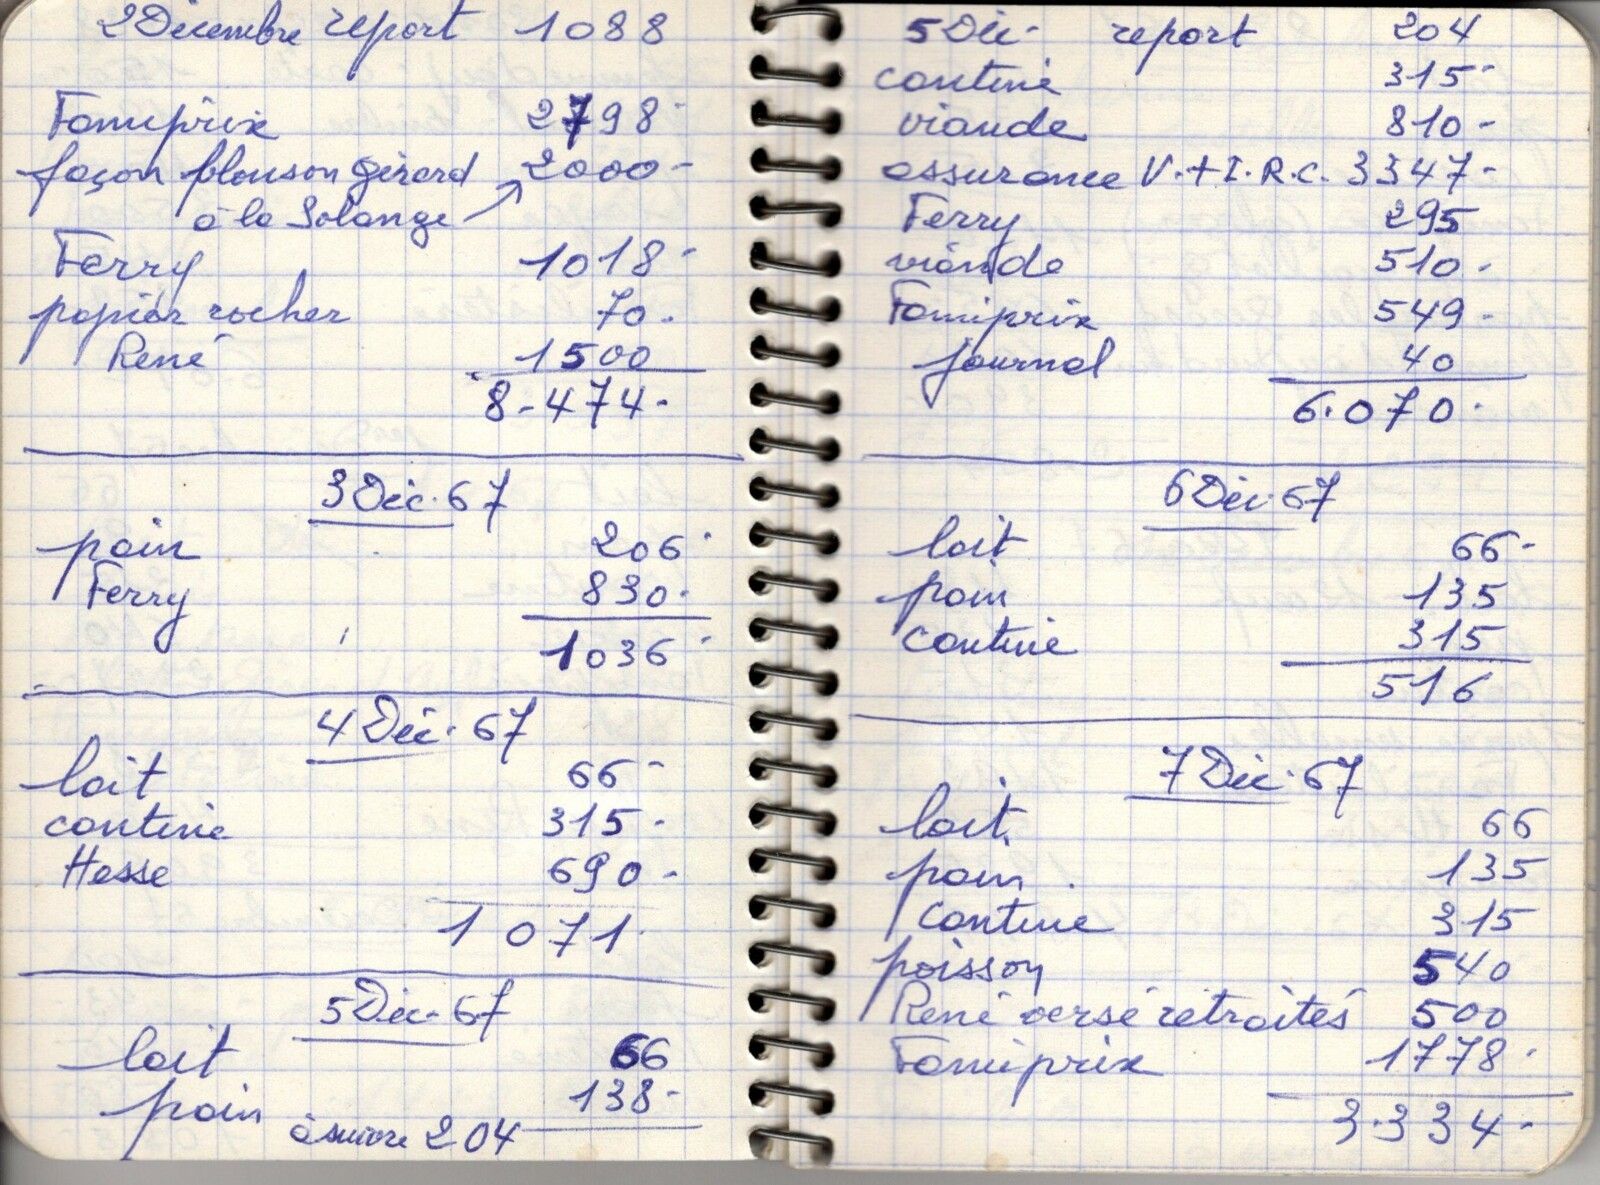 2 Décembre report 1088
Famiprix 2798-
façon blouson Gérard 2000-
à la Solange
Ferry 1018-
papier rocher 70.
René 1500
8-474-
3 Déc. 67
pain 206-
Ferry 830.
1036-
4 Déc. 67
lait 66-
cantine 315.
Hesse 690-
1071.
5 Déc. 67
lait 66
pain 138-
à suivre 204
5 Déc. report 204
cantine 315-
viande 810-
assurance V.+I.R.C. 3347-
Ferry 295
viande 510.
Famiprix 549-
journal 40
6.070.
6 Déc. 67
lait 66-
pain 135
cantine 315
516
7 Déc. 67
lait 66
pain 135
cantine 315
poisson 540
René versé retraités 500
Famiprix 1778-
3.334-